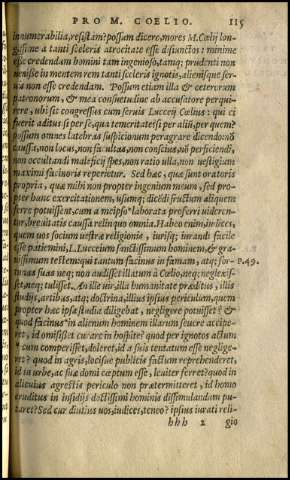 PRO M. COELIO. 115
innumerabilia, resistam? possum dicere, mores M. Cœlij lon-
gissime a tanti sceleris atrocitate esse disiunctos: minime
esse credendum homini tam ingenioso, tamq; prudenti non
uenisse in mentem rem tanti sceleris ignotis, alienisque ser-
uis non esse credendam. Possum etiam illa & ceterorum
patronorum, & mea consuetudine ab accusatore perqui-
rere, ubi sit congressus cum seruis Lucceij Cœlius: qui ei
fuerit aditus si per se, qua temeritate? si per alium, per quem?
possum omnes latebras suspicionum peragrare dicendo: nō
caussa, non locus, non facultas, non conscius, nō perficiendi,
non occultandi maleficij spes, non ratio ulla, non uestigium
maximi facinoris reperietur. Sed hæc, quæ sunt oratoris
propria, quæ mihi non propter ingenium meum, sed pro-
pter hanc exercitationem, usumq; dicēdi fructum aliquem
ferre potuissent, cum a meipso elaborata proferri uideren-
tur, breuitatis caussa relinquo omnia. Habeo enim, iudices,
quem uos socium uestræ religionis, iurisq; iurandi facile
esse patiemini, L. Lucceium sanctissimum hominem, & gra-
uissimum testem: qui tantum facinus in famam, atq; for-
tunas suas neq; non audisset illatum à Cœlio, neq; neglexis-
set, neq; tulisset. An ille uir, illa humanitate præditus, illis
studijs, artibus, atq; doctrina, illius ipsius periculum, quem
propter hæc ipsa studia diligebat, negligere potuisset? &
quod facinus in alienum hominem illatum seuere accipe-
ret, id omisisset curare in hospite? quod per ignotos actum
cum comperisset, doleret, id a suis tentatum esse neglige-
ret? quod in agris, locisue publicis factum reprehenderet,
id in urbe, ac suæ domi cœptum esse, leuiter ferret? quod in
alicuius agrestis periculo non prætermitteret, id homo
eruditus in insidijs doctissimi hominis dissimulandum pu-
taret? Sed cur diutius uos, iudices, teneo? ipsius iurati reli-
hhh 2 gio
P. 49.